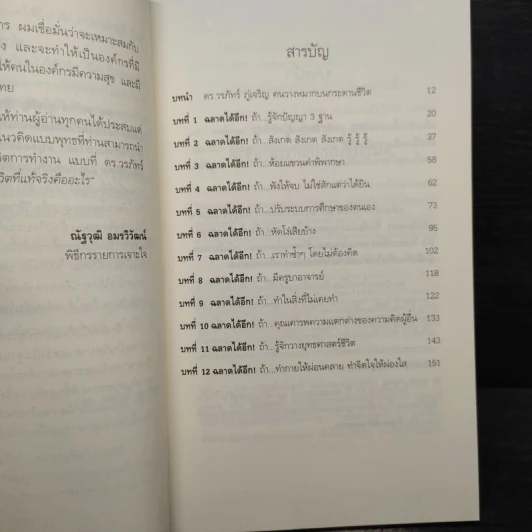 าร ผมเชื่อมั่นว่าจะเหมาะสมกับ
ง และจะทำให้เป็นองค์กรที่มี
ให้คนในองค์กรมีความสุข และมี
ทย
ให้ท่านผู้อ่านทุกคนได้ประสบแต่
แนวคิดแบบพุทธที่ท่านสามารถนำ
ชีตการทำงาน แบบที่ ดร.วรภัทร์
วิตที่แท้จริงคืออะไร"
ณัฐวุฒิ อมรวิวัฒน์
พิธีกรรายการเจาะใจ
สารบัญ
บทนำ ดร.วรภัทร์ ภู่เจริญ คนวางหมากบนกระดานชีวิต 12
บทที่ 1 ฉลาดได้อีก! ถ้า...รู้จักปัญญา 3 ฐาน 20
บทที่ 2 ฉลาดได้อีก! ถ้า...สังเกต สังเกต สังเกต รู้ รู้ รู้ 37
บทที่ 3 ฉลาดได้อีก! ถ้า...ห้อยแขวนคำพิพากษา 58
บทที่ 4 ฉลาดได้อีก! ถ้า...ฟังให้จบ ไม่ใช่สักแต่ว่าได้ยิน 62
บทที่ 5 ฉลาดได้อีก! ถ้า...ปรับระบบการศึกษาของตนเอง 73
บทที่ 6 ฉลาดได้อีก! ถ้า...หัดโง่เสียบ้าง 95
บทที่ 7 ฉลาดได้อีก! ถ้า...เราทำซ้ำๆ โดยไม่ต้องคิด 102
บทที่ 8 ฉลาดได้อีก! ถ้า...มีครูบาอาจารย์ 118
บทที่ 9 ฉลาดได้อีก! ถ้า...ทำในสิ่งที่ไม่เคยทำ 122
บทที่ 10 ฉลาดได้อีก! ถ้า...คุณเคารพความแตกต่างของความคิดผู้อื่น 133
บทที่ 11 ฉลาดได้อีก! ถ้า...รู้จักวางยุทธศาสตร์ชีวิต 143
บทที่ 12 ฉลาดได้อีก! ถ้า...ทำกายให้ผ่อนคลาย ทำจิตใจให้ผ่องใส 151